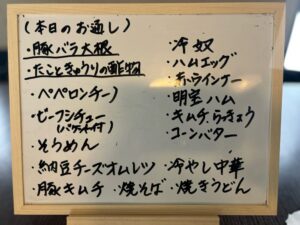 (本日のお通し)
・豚バラ大根
・たこときゅうりの酢物
・ペペロンチーノ
・ビーフシチュー
(バゲット付)
・そうめん
・納豆チーズオムレツ
・豚キムチ ・焼そば ・焼きうどん
・冷奴
・ハムエッグ
・赤ウインナー
・明宝ハム
・キムチらっきょう
・コーンバター
・冷やし中華